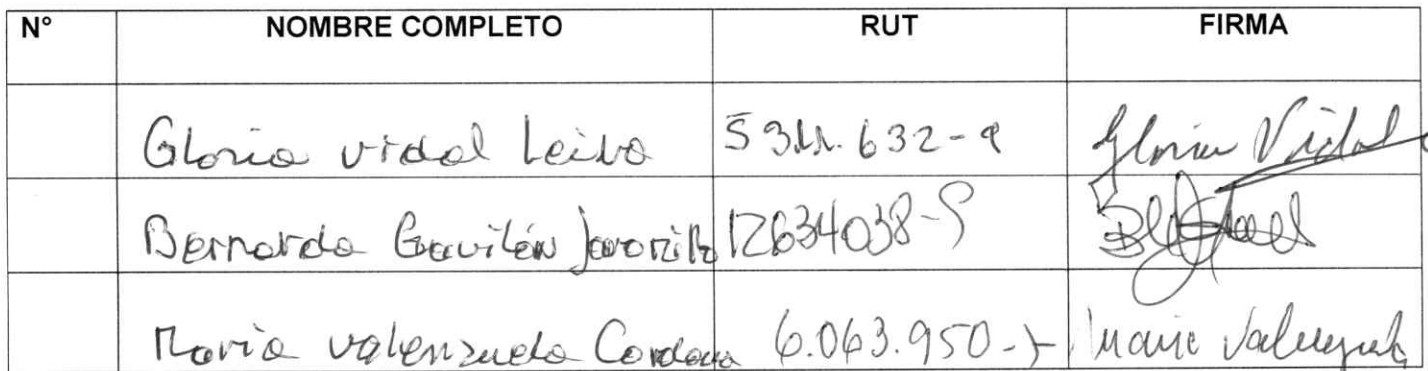 N° NOMBRE COMPLETO RUT FIRMA
Gloria Vidal Leiva 5311.632-9 Gloria Vidal
Bernarda Gavilán Jaramillo 12634038-9
Maria Valenzuela Cordova 6.063.950-7 Maria Valenzuela